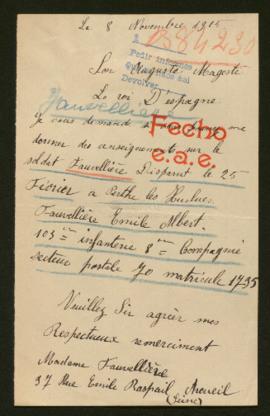 Le 8 Novembre 1915
158 4230
Pedir informe
Devolver
Son Magesté Magesté
Le roi D'espagne
Fauvellière
je vous demande
Fecho
e.a.e.
donner des anseignements sur le
soldat Fauvellière Disparut le 25
Février a Perthe les Hurlues
Fauvellière Emile Albert.
103me infanterie 8me Compagnie
secteur postale 70 matricule 1735
Veuillez Sir agréer mes
Respectueux remerciment
Madame Fauvellière
37 Rue Emile Raspail Arcueil
(Seine)